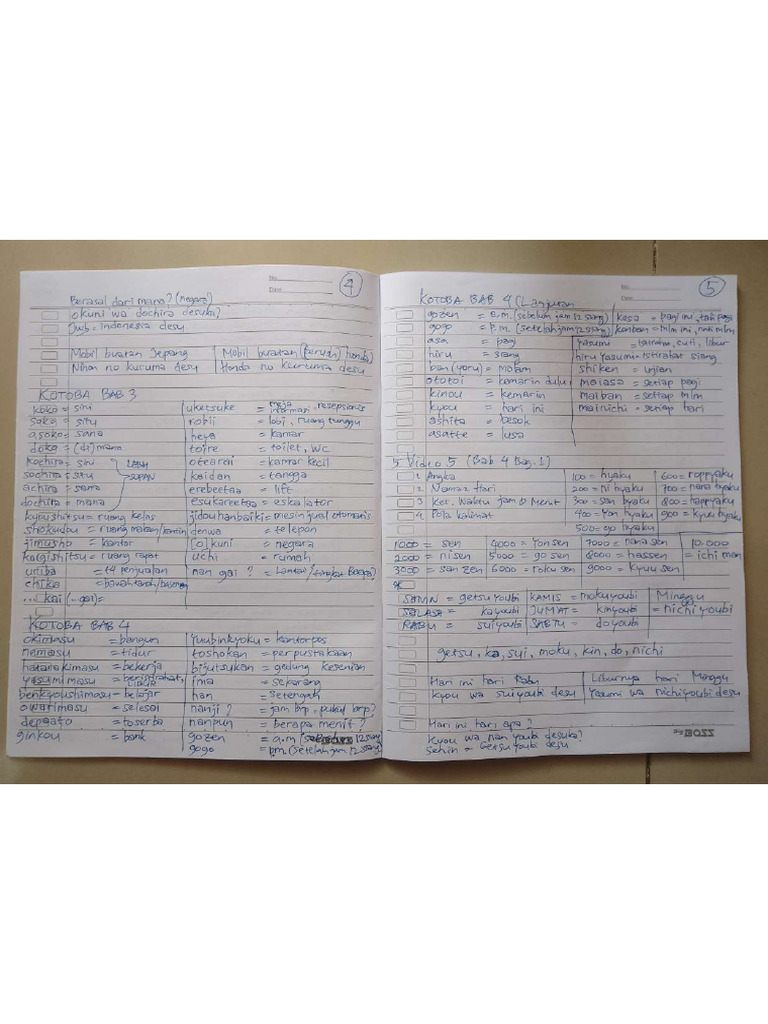 No.
Date
4
Berasal dari mana? (negara)
okuni wa dochira desuka?
Jwb = Indonesia desu
Mobil buatan Jepang | Mobil buatan (perush) honda
Nihon no kuruma desu | Honda no kuruma desu
KOTOBA BAB 3
koko = sini
soko = situ
asoko = sana
doko = (di) mana
kochira = sini
sochira = situ
achira = sana
dochira = mana
LEBIH SOPAN
kyoushitsu = ruang kelas
shokudou = ruang makan/kantin
jimusho = kantor
kaigishitsu = ruang rapat
uriba = t4 penjualan
chika = bawah tanah/basemen
... kai (..gai) =
uketsuke = meja informasi, resepsionis
robii = lobi, ruang tunggu
heya = kamar
toire = toilet, wc
otearai = kamar kecil
kaidan = tangga
erebeetaa = lift
esukareetaa = eskalator
jidouhanbaiki = mesin jual otomatis
denwa = telepon
[o] kuni = negara
uchi = rumah
nan gai? = Lantai/tingkat Berapa?
KOTOBA BAB 4
okimasu = bangun
nemasu = tidur
hatarakimasu = bekerja
yasumimasu = beristirahat, libur
benkyoushimasu = belajar
owarimasu = selesai
depaato = toserba
ginkou = bank
yuubinkyoku = kantorpos
toshokan = perpustakaan
bijutsukan = gedung kesenian
ima = sekarang
han = setengah
nanji? = jam brp, pukul brp?
nanpun = berapa menit?
gozen = a.m (sebelum 12 siang)
gogo = p.m. (setelah jam 12 siang)
BOSS
No.
Date
5
KOTOBA BAB 4 (Lanjutan
gozen = a.m. (sebelum jam 12 siang)
gogo = p.m. (setelah jam 12 siang)
asa = pagi
hiru = siang
ban (yoru) = malam
ototoi = kemarin dulu
kinou = kemarin
kyou = hari ini
ashita = besok
asatte = lusa
kesa = pagi ini, tadi pagi
konban = mlm ini, nanti mlm
yasumi = istirahat, cuti, libur
hiru yasumi = istirahat siang
shiken = ujian
maiasa = setiap pagi
maiban = setiap mlm
mainichi = setiap hari
5 Video 5 (Bab 4 Bag. 1)
1. Angka
2. Nama2 Hari
3 Ket. Waktu jam & Menit
4. Pola kalimat
100 = hyaku
200 = ni hyaku
300 = san byaku
400 = yon hyaku
500 = go hyaku
600 = roppyaku
700 = nana hyaku
800 = happyaku
900 = kyuu hyaku
1000 = sen | 4000 = yon sen | 7000 = nana sen | 10.000
2000 = nisen | 5000 = go sen | 8000 = hassen | = ichi man
3000 = san zen | 6000 = roku sen | 9000 = kyuu sen
SENIN = getsuyoubi | KAMIS = mokuyoubi | Minggu
SELASA = kayoubi | JUMAT = kinyoubi | = nichiyoubi
RABU = suiyoubi | SABTU = doyoubi
getsu, ka, sui, moku, kin, do, nichi
Hari ini hari Rabu | Liburnya hari Minggu
kyou wa suiyoubi desu | Yasumi wa nichiyoubi desu
Hari ini hari apa?
kyou wa nan youbi desuka?
Senin = Getsuyoubi desu
BOSS